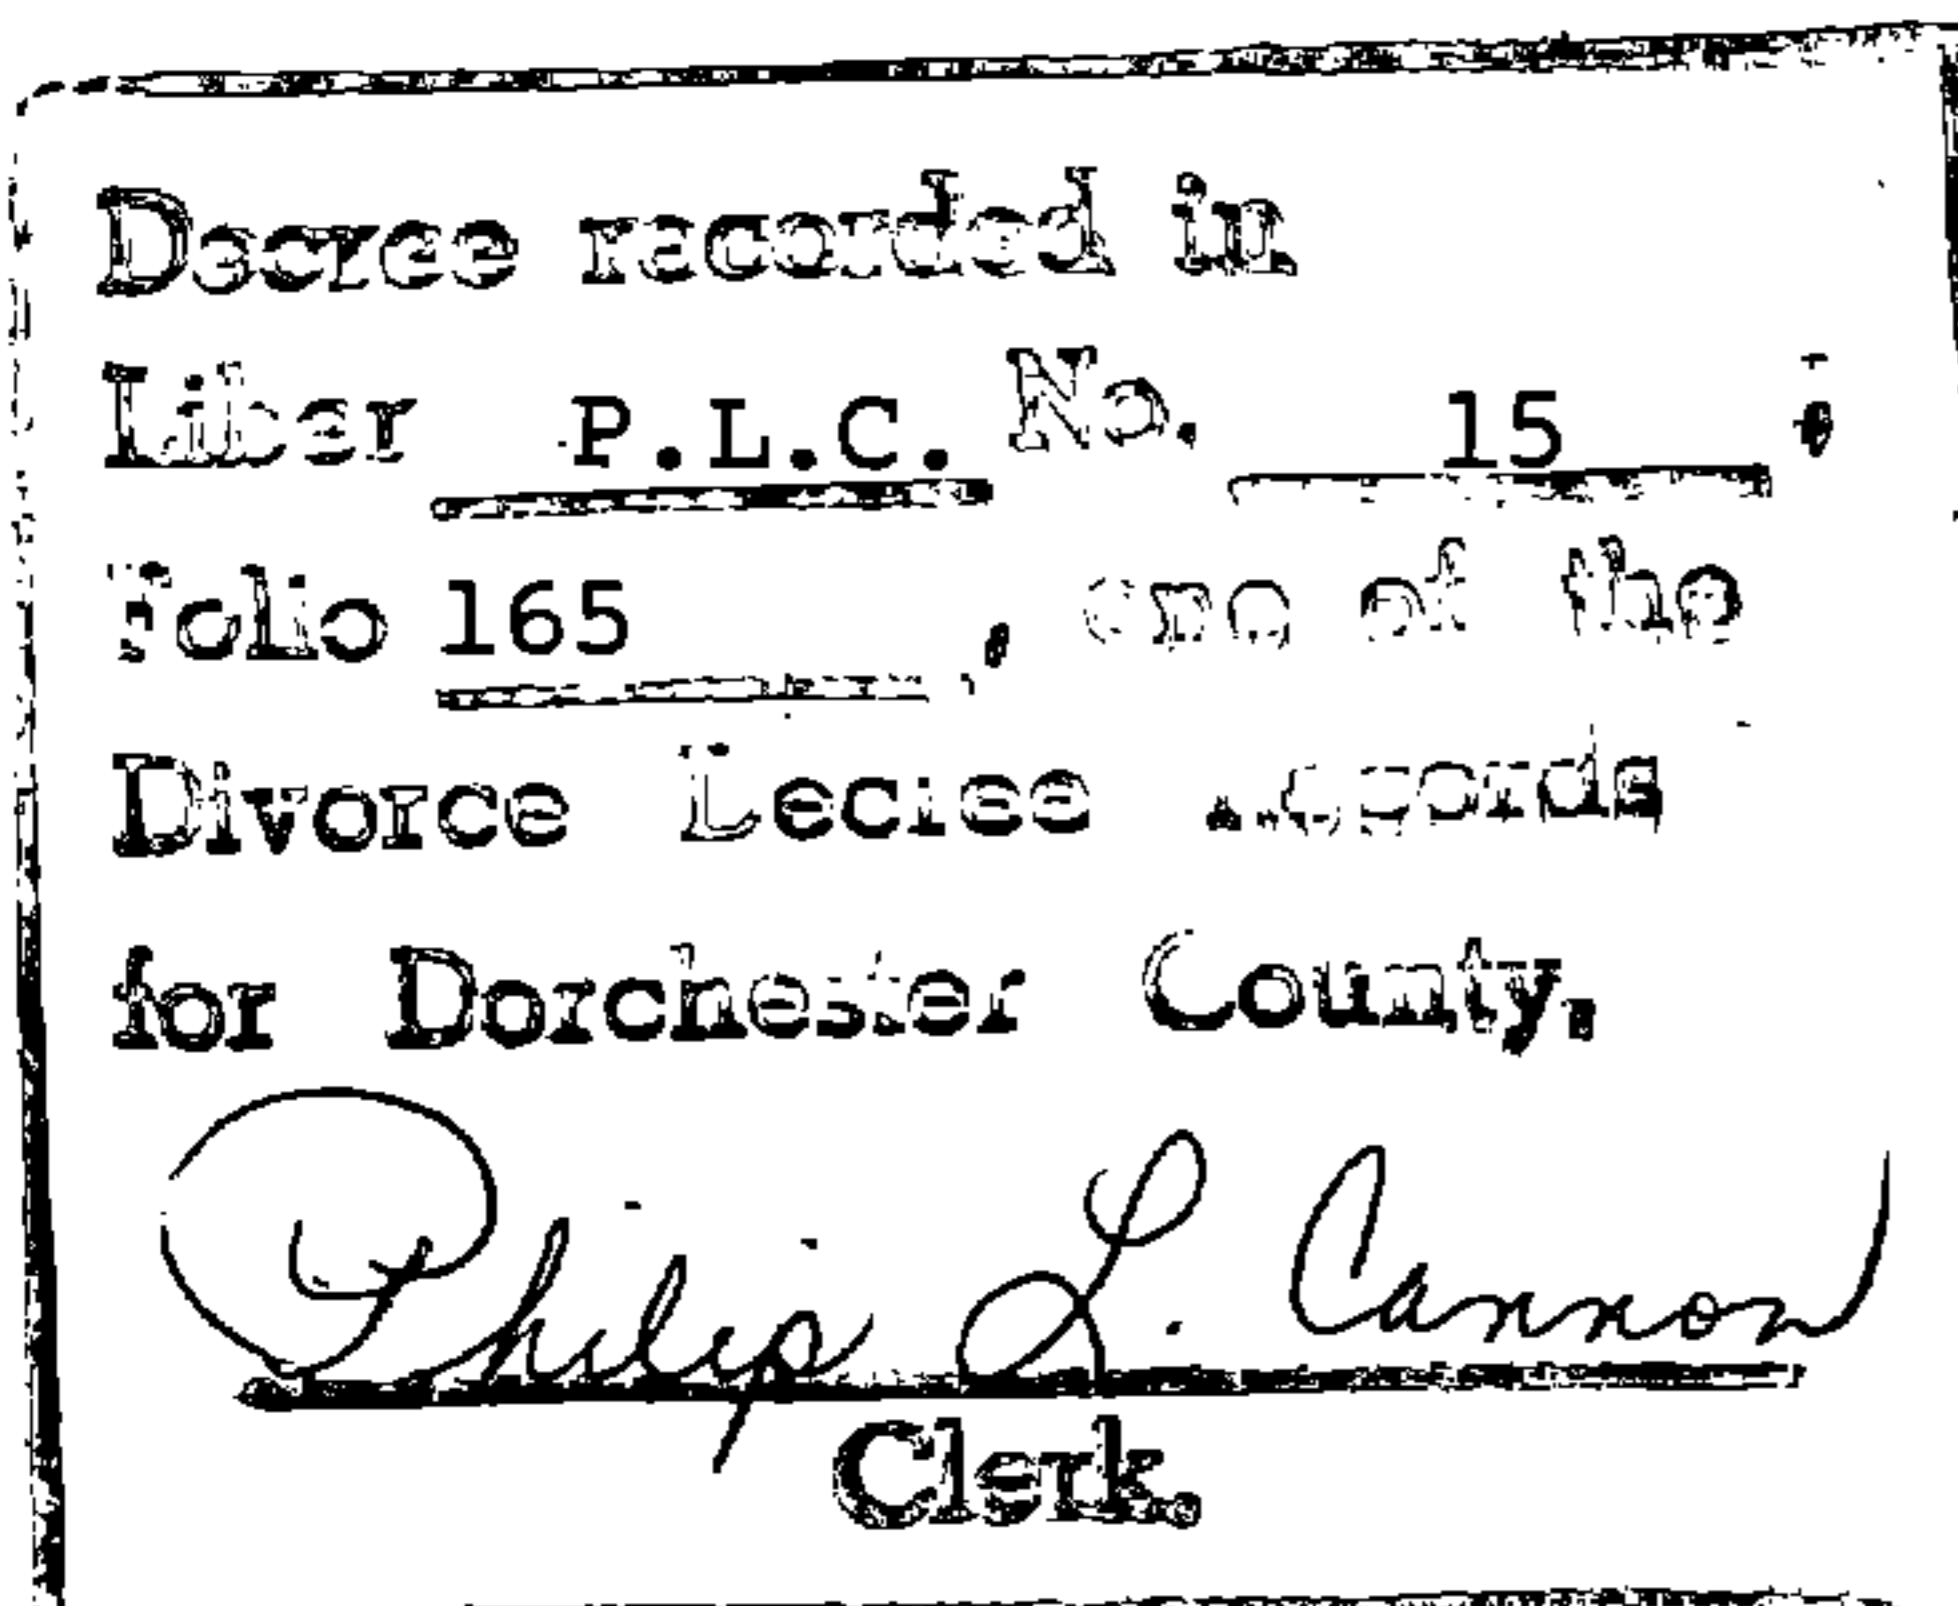 Decree recorded in
Liber P.L.C. No. 15,
Folio 165, one of the
Divorce Decree Records
for Dorchester County.
Philip L. Cannon
Clerk.